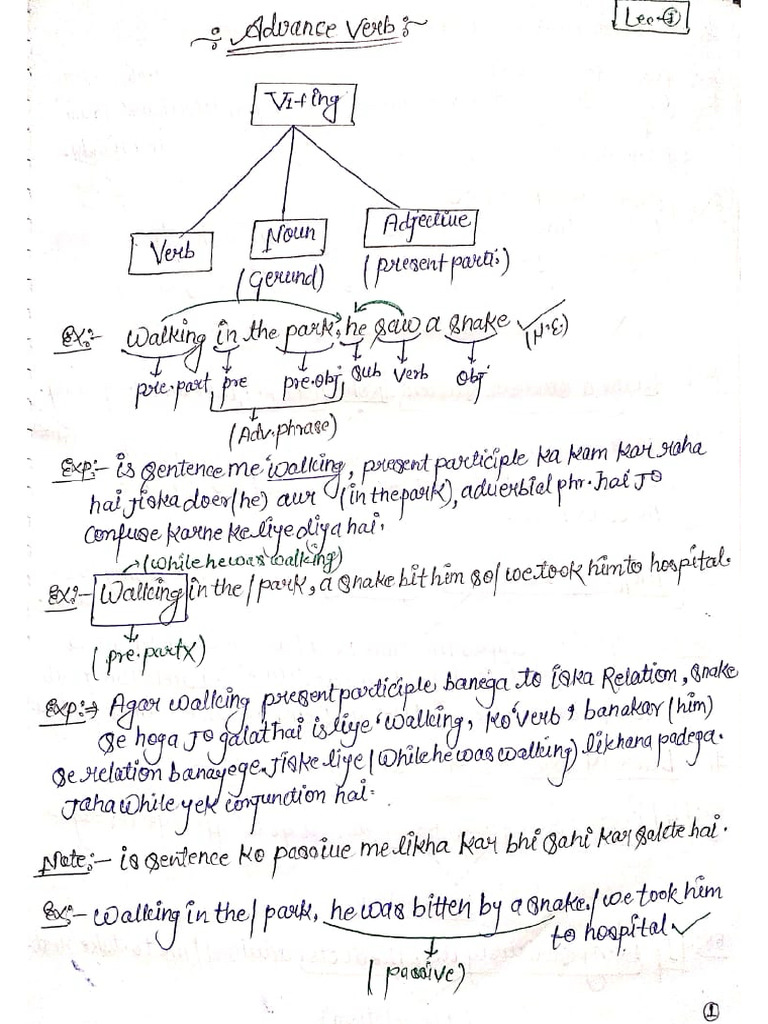 Advance Verb
Lec-①
V1+ing
Verb
Noun
Adjective
(Gerund)
(present parti:)
Ex:- Walking in the park, he saw a snake ✓ (H.E.)
pre.part. pre pre.obj sub verb obj
(Adv.phrase)
Exp:- is sentence me 'walking, present participle ka kam kar raha
hai jiska doer(he) aur (in the park), adverbial phr. hai jo
confuse karne ke liye diya hai.
→(while he was walking)
Ex:- Walking in the/park, a snake bit him so/we took him to hospital.
(pre.part X)
Exp:→ Agar walking present participle banega to iska Relation, snake
se hoga jo galat hai is liye 'walking, ko 'verb, banakar (him)
se relation banayege. jiske liye (while he was walking) likhana padega.
jaha while yek conjunction hai.
Note:- is sentence ko passive me likha kar bhi sahi kar sakte hai.
Ex:- Walking in the/park, he was bitten by a snake./we took him
to hospital ✓
(passive)
①